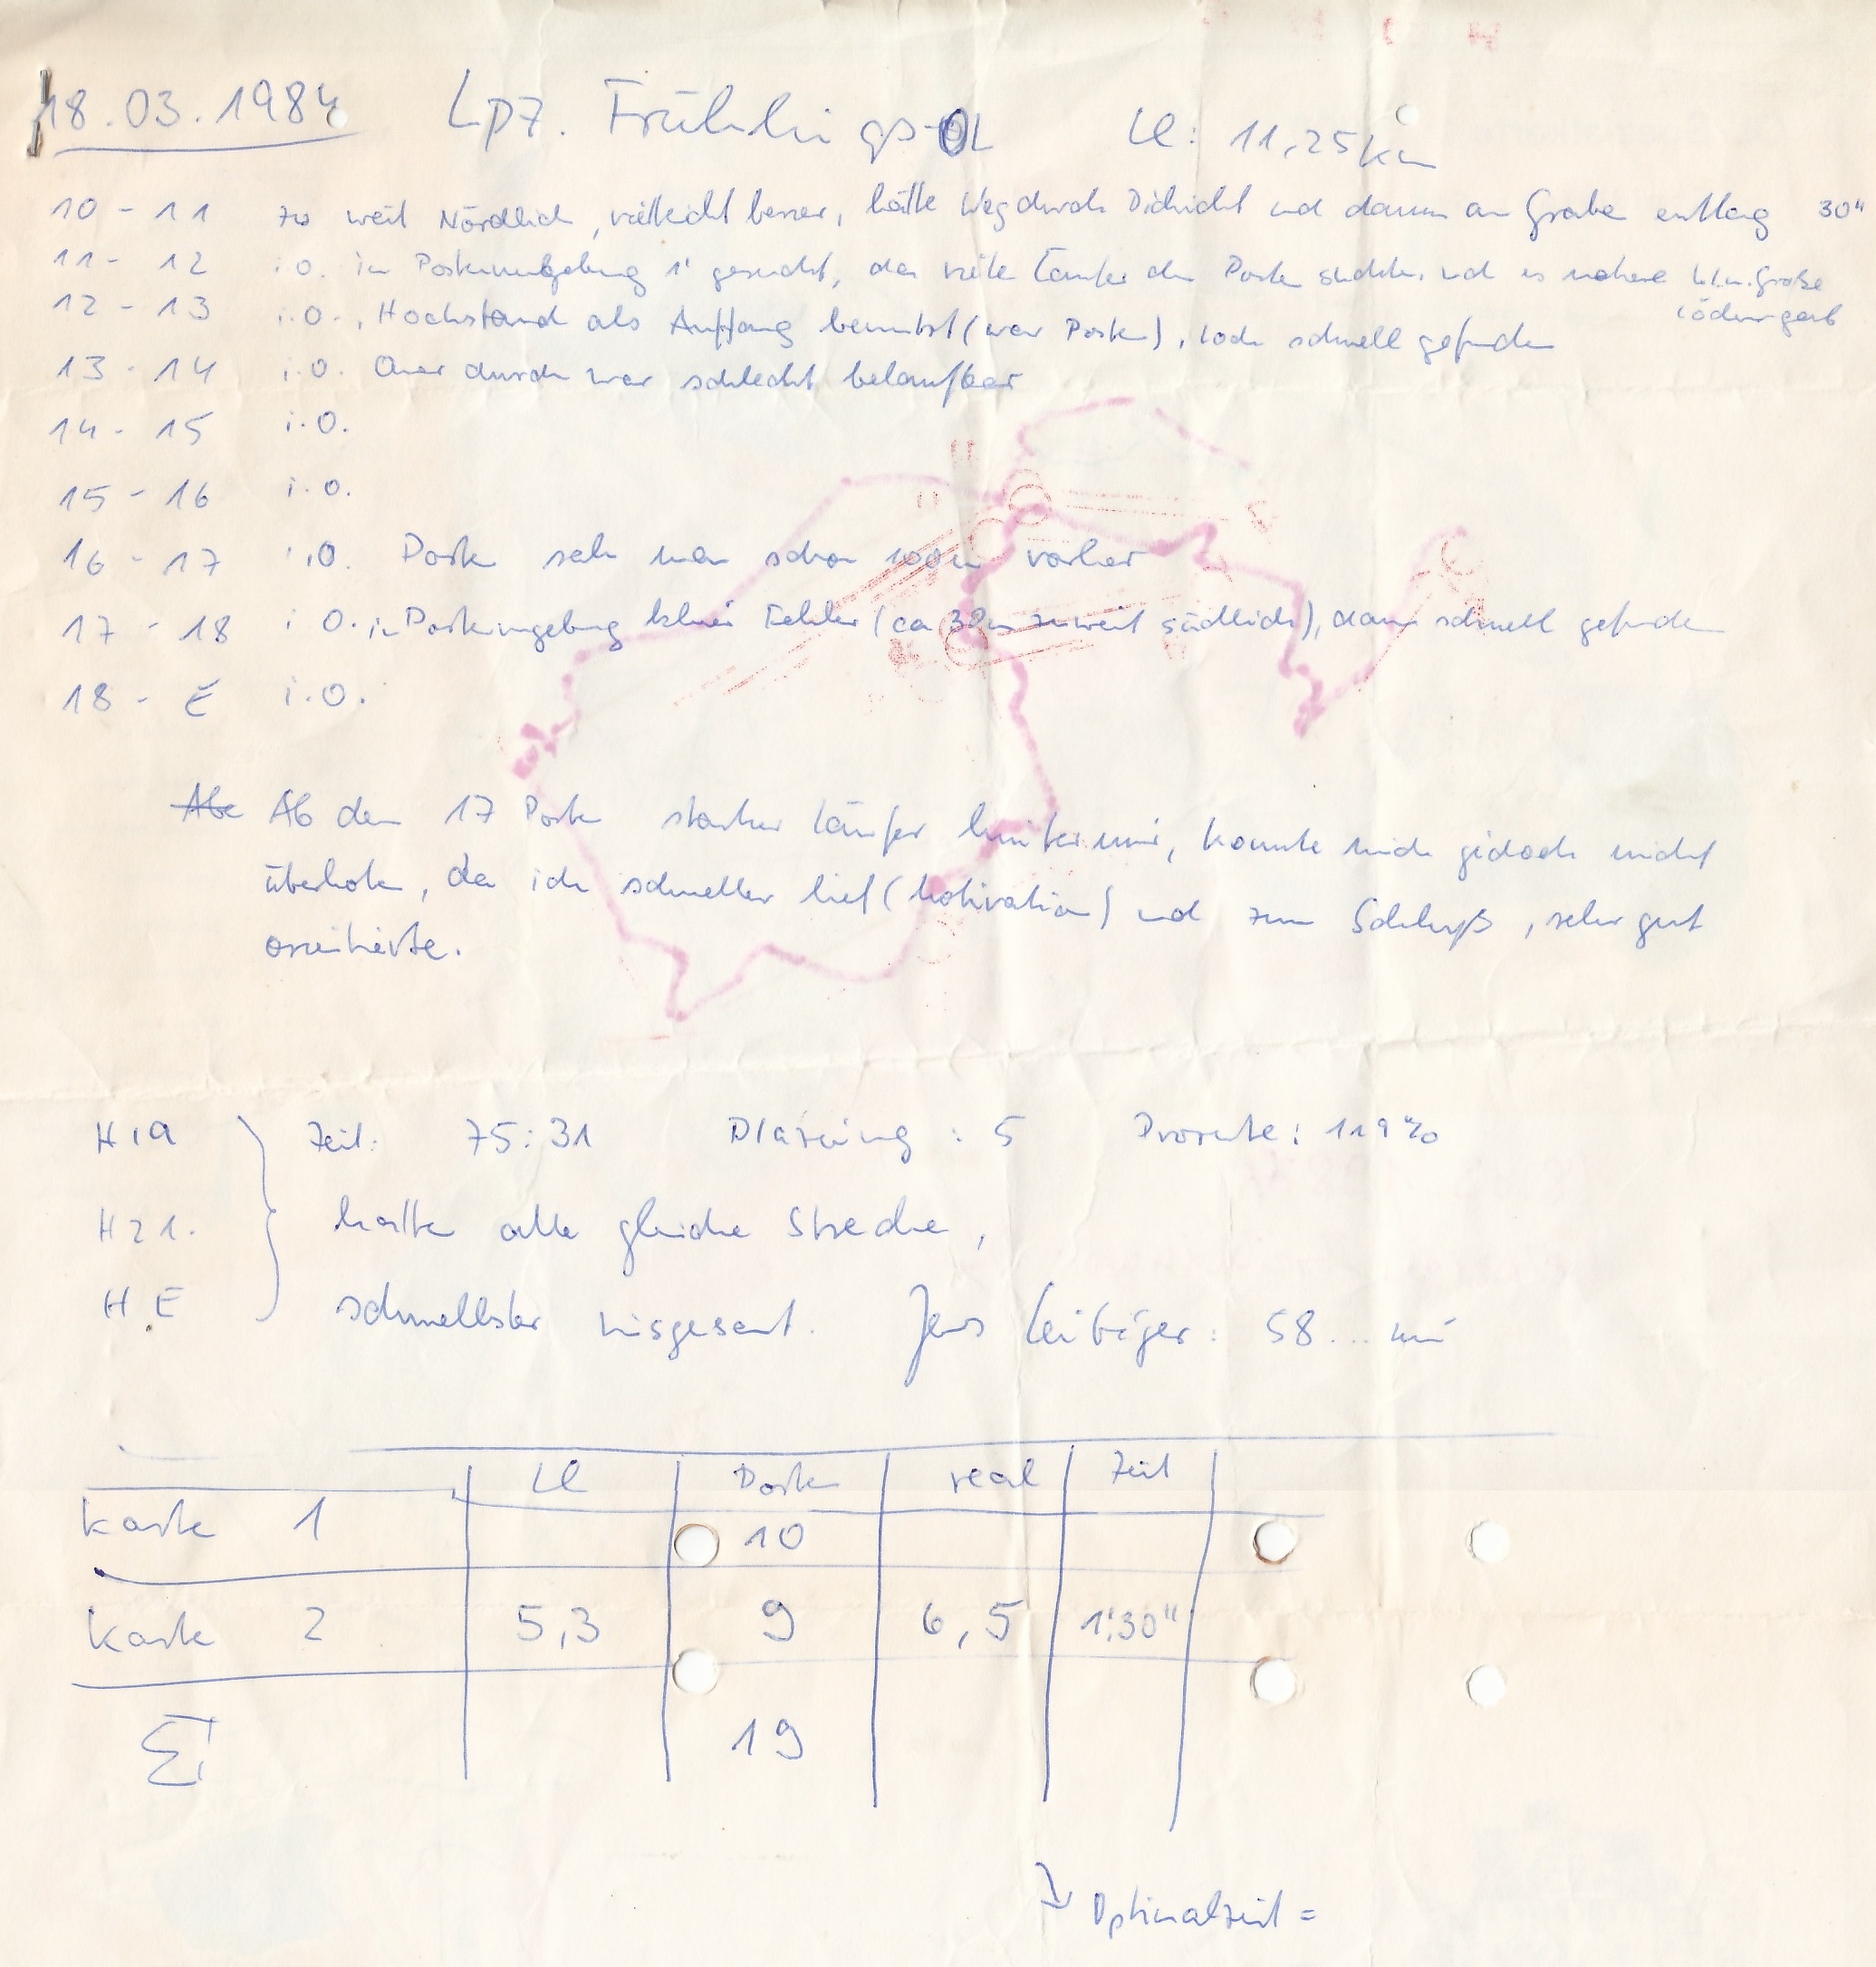 18.03.1984 Lpz. Frühlings-OL LL: 11,25km
10 - 11 zu weit Nördlich, vielleicht besser, hätte Weg durch Dickicht und dann an Graben entlang 30"
11 - 12 i.O. in Postenumgebung 1' gesucht, da viele Läufer den Posten suchten und es mehrere kl. u. große
Löcher gab
12 - 13 i.O., Hochstand als Auffang benutzt (war Posten), Loch schnell gefunden
13 - 14 i.O. Quer durch war schlecht belaufbar
14 - 15 i.O.
15 - 16 i.O.
16 - 17 i.O. Posten sah man schon 100m vorher
17 - 18 i.O. in Postenumgebung kleiner Fehler (ca 30m zu weit südlich), dann schnell gefunden
18 - E i.O.
Ab dem 17 Posten starker Läufer hinter mir, konnte mich jedoch nicht
überholen, da ich schneller lief (Motivation) und zum Schluß, sehr gut
orientierte.
H19 Zeit: 75:31 Plazierung: 5 Prozente: 119%
H21. hatten alle gleiche Strecke,
H.E schnellster insgesamt. Jens Leibiger: 58... min
LL Posten real Zeit
Karte 1 10
Karte 2 5,3 9 6,5 1'30"
Σ 19
Optimalzeit =